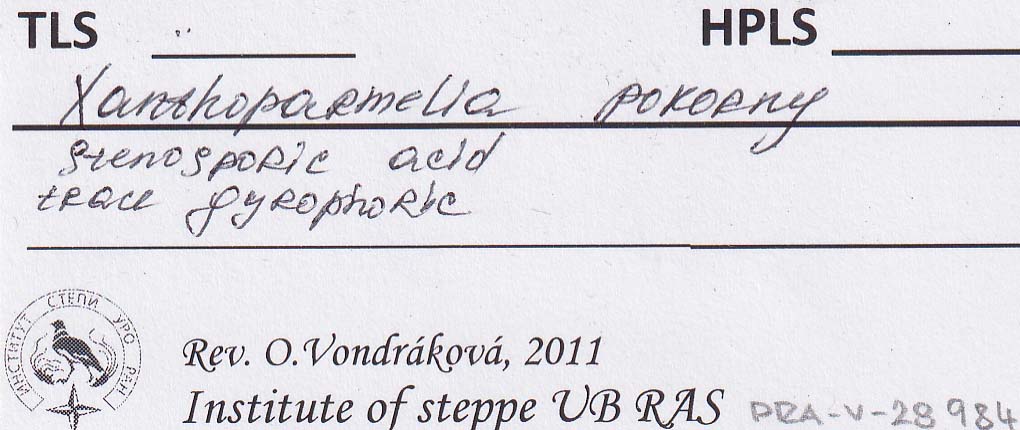 TLS HPLS
Xanthoparmelia pokorny
stenosporic acid
trace gyrophoric
ИНСТИТУТ СТЕПИ УРО РАН
Rev. O.Vondráková, 2011
Institute of steppe UB RAS PRA-V-28984